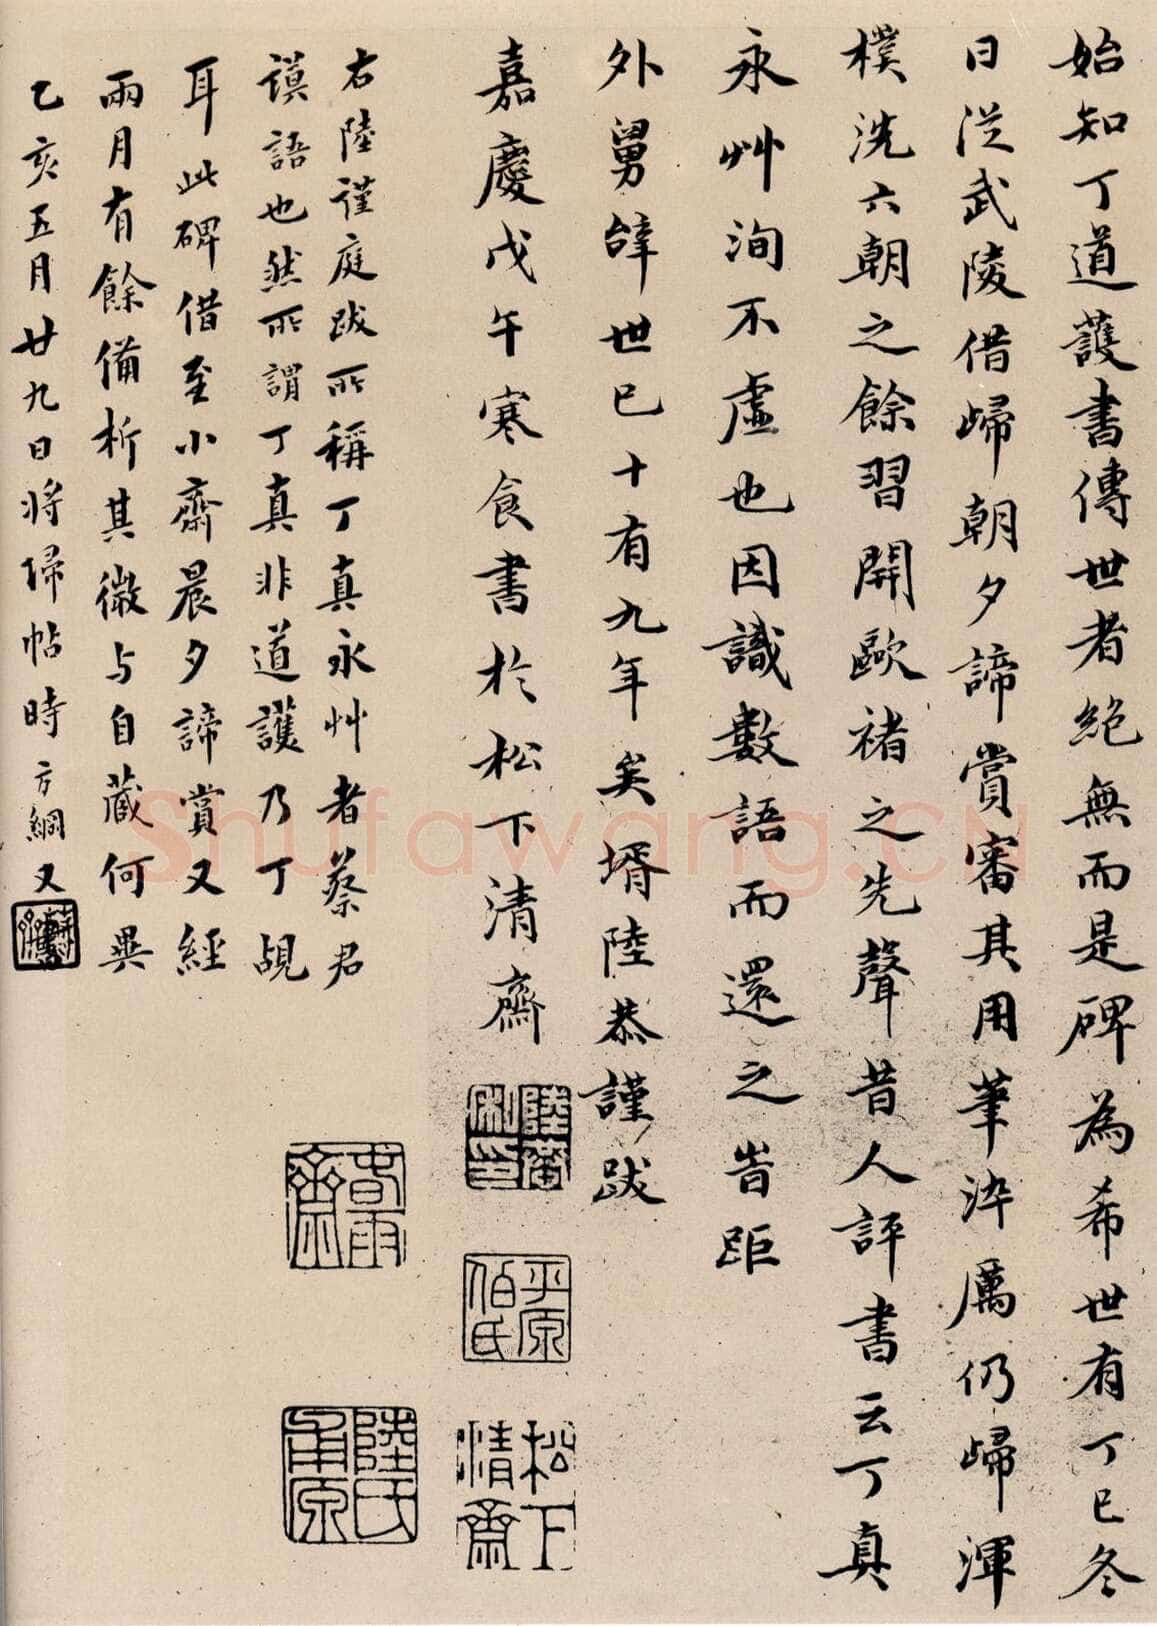 始知丁道護書傳世者絶無而是碑為希世有丁巳冬
日從武陵借歸朝夕諦賞審其用筆淬厲仍歸渾
樸洗六朝之餘習開歐褚之先聲昔人評書云丁真
永艸洵不虛也因識數語而還之旹距
外舅辭世已十有九年矣壻陸恭謹跋
嘉慶戊午寒食書於松下清齋
陸恭私印
平原伯氏
松下清齋
右陸謹庭跋所稱丁真永艸者蔡君
謨語也然所謂丁真非道護乃丁覘
耳此碑借至小齋晨夕諦賞又經
兩月有餘備析其微与自藏何異
乙亥五月廿九日將歸帖時方綱又
蘇齋
陸氏甫原
Shufawang.CN